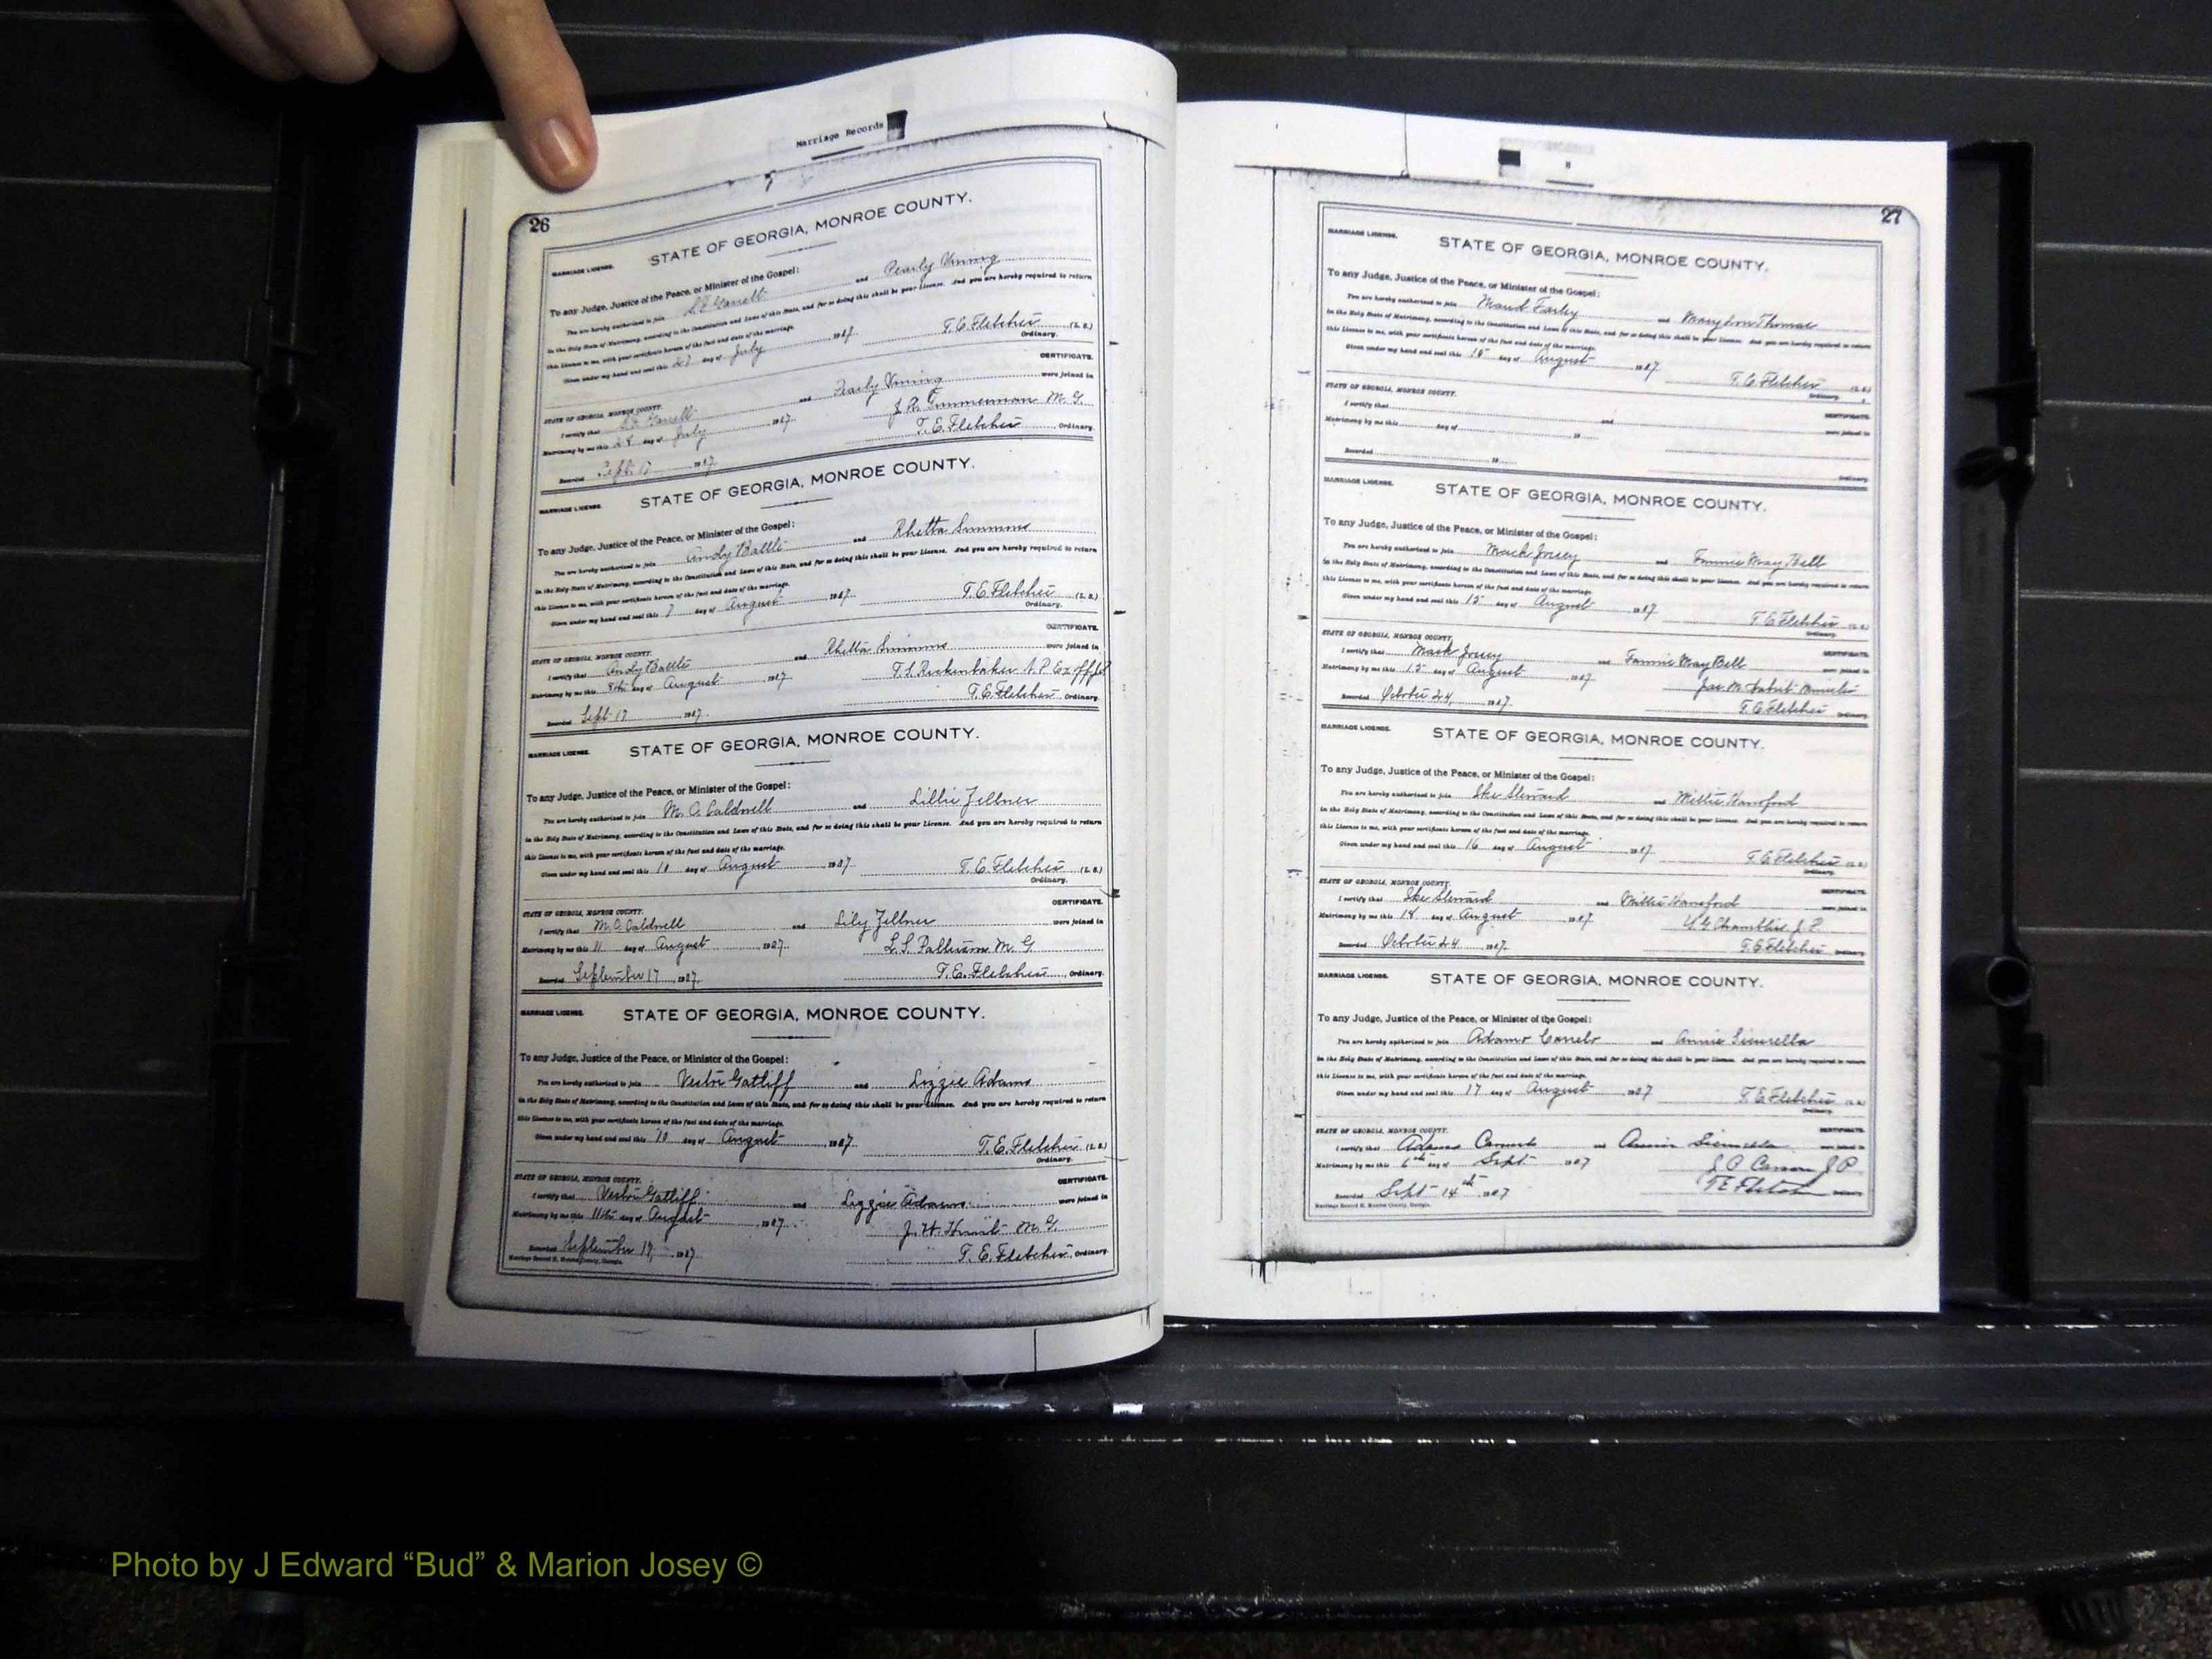 Marriage Records
26
MARRIAGE LICENSE.
STATE OF GEORGIA, MONROE COUNTY.
To any Judge, Justice of the Peace, or Minister of the Gospel:
You are hereby authorized to join Garrett and Pearly Vining
in the Holy State of Matrimony, according to the Constitution and Laws of this State, and for so doing this shall be your License. And you are hereby required to return
this License to me, with your certificate hereon of the fact and date of the marriage.
Given under my hand and seal this 27 day of July T. E. Fletcher (L. S.)
Ordinary.
CERTIFICATE.
STATE OF GEORGIA, MONROE COUNTY.
I certify that Garrett and Pearly Vining were joined in
Matrimony by me this 28 day of July J. R. Timmerman M. G.
Recorded Sept. 17 T. E. Fletcher Ordinary.
MARRIAGE LICENSE.
STATE OF GEORGIA, MONROE COUNTY.
To any Judge, Justice of the Peace, or Minister of the Gospel:
You are hereby authorized to join Andy Battle and Rhetta Simmons
in the Holy State of Matrimony, according to the Constitution and Laws of this State, and for so doing this shall be your License. And you are hereby required to return
this License to me, with your certificate hereon of the fact and date of the marriage.
Given under my hand and seal this 7 day of August T. E. Fletcher (L. S.)
Ordinary.
CERTIFICATE.
STATE OF GEORGIA, MONROE COUNTY.
I certify that Andy Battle and Rhetta Simmons were joined in
Matrimony by me this 8th day of August Rickenbaker N. P. Ex off
Recorded Sept 17 T. E. Fletcher Ordinary.
MARRIAGE LICENSE.
STATE OF GEORGIA, MONROE COUNTY.
To any Judge, Justice of the Peace, or Minister of the Gospel:
You are hereby authorized to join M. C. Caldwell and Lillie Zellner
in the Holy State of Matrimony, according to the Constitution and Laws of this State, and for so doing this shall be your License. And you are hereby required to return
this License to me, with your certificate hereon of the fact and date of the marriage.
Given under my hand and seal this 10 day of August T. E. Fletcher (L. S.)
Ordinary.
CERTIFICATE.
STATE OF GEORGIA, MONROE COUNTY.
I certify that M. C. Caldwell and Lily Zellner were joined in
Matrimony by me this 11 day of August L. S. M. G.
Recorded September 17 T. E. Fletcher, Ordinary.
MARRIAGE LICENSE.
STATE OF GEORGIA, MONROE COUNTY.
To any Judge, Justice of the Peace, or Minister of the Gospel:
You are hereby authorized to join Vester Gatliff and Lizzie Adams
in the Holy State of Matrimony, according to the Constitution and Laws of this State, and for so doing this shall be your License. And you are hereby required to return
this License to me, with your certificate hereon of the fact and date of the marriage.
Given under my hand and seal this 10 day of August T. E. Fletcher (L. S.)
Ordinary.
STATE OF GEORGIA, MONROE COUNTY. CERTIFICATE.
I certify that Vester Gatliff and Lizzie Adams were joined in
Matrimony by me this 11th day of August J. H. M. G.
Recorded September 17, T. E. Fletcher, Ordinary.
Marriage Record H, Monroe County, Georgia.
27
MARRIAGE LICENSE.
STATE OF GEORGIA, MONROE COUNTY.
To any Judge, Justice of the Peace, or Minister of the Gospel:
You are hereby authorized to join Maud Farley and Mary Lou Thomas
in the Holy State of Matrimony, according to the Constitution and Laws of this State, and for so doing this shall be your License. And you are hereby required to return
this License to me, with your certificate hereon of the fact and date of the marriage.
Given under my hand and seal this 15 day of August T. E. Fletcher (L. S.)
Ordinary.
STATE OF GEORGIA, MONROE COUNTY. CERTIFICATE.
I certify that and were joined in
Matrimony by me this day of 19
Recorded 19 Ordinary.
MARRIAGE LICENSE.
STATE OF GEORGIA, MONROE COUNTY.
To any Judge, Justice of the Peace, or Minister of the Gospel:
You are hereby authorized to join Mack Josey and Fannie May Bell
in the Holy State of Matrimony, according to the Constitution and Laws of this State, and for so doing this shall be your License. And you are hereby required to return
this License to me, with your certificate hereon of the fact and date of the marriage.
Given under my hand and seal this 15 day of August T. E. Fletcher (L. S.)
Ordinary.
STATE OF GEORGIA, MONROE COUNTY. CERTIFICATE.
I certify that Mack Josey and Fannie May Bell were joined in
Matrimony by me this 15 day of August Jas. M. Minister
Recorded October 24, T. E. Fletcher Ordinary.
MARRIAGE LICENSE.
STATE OF GEORGIA, MONROE COUNTY.
To any Judge, Justice of the Peace, or Minister of the Gospel:
You are hereby authorized to join Ike Steward and Millie Hansford
in the Holy State of Matrimony, according to the Constitution and Laws of this State, and for so doing this shall be your License. And you are hereby required to return
this License to me, with your certificate hereon of the fact and date of the marriage.
Given under my hand and seal this 16 day of August T. E. Fletcher (L. S.)
Ordinary.
STATE OF GEORGIA, MONROE COUNTY. CERTIFICATE.
I certify that Ike Steward and Millie Hansford were joined in
Matrimony by me this day of August Chambliss J. P.
Recorded October 24 T. E. Fletcher Ordinary.
MARRIAGE LICENSE.
STATE OF GEORGIA, MONROE COUNTY.
To any Judge, Justice of the Peace, or Minister of the Gospel:
You are hereby authorized to join Adams and Annie
in the Holy State of Matrimony, according to the Constitution and Laws of this State, and for so doing this shall be your License. And you are hereby required to return
this License to me, with your certificate hereon of the fact and date of the marriage.
Given under my hand and seal this 17 day of August T. E. Fletcher (L. S.)
Ordinary.
STATE OF GEORGIA, MONROE COUNTY. CERTIFICATE.
I certify that Adams and Annie were joined in
Matrimony by me this 6th day of Sept J. P.
Recorded Sept 14th T E Fletcher Ordinary
Marriage Record H, Monroe County, Georgia.
Photo by J Edward “Bud” & Marion Josey ©